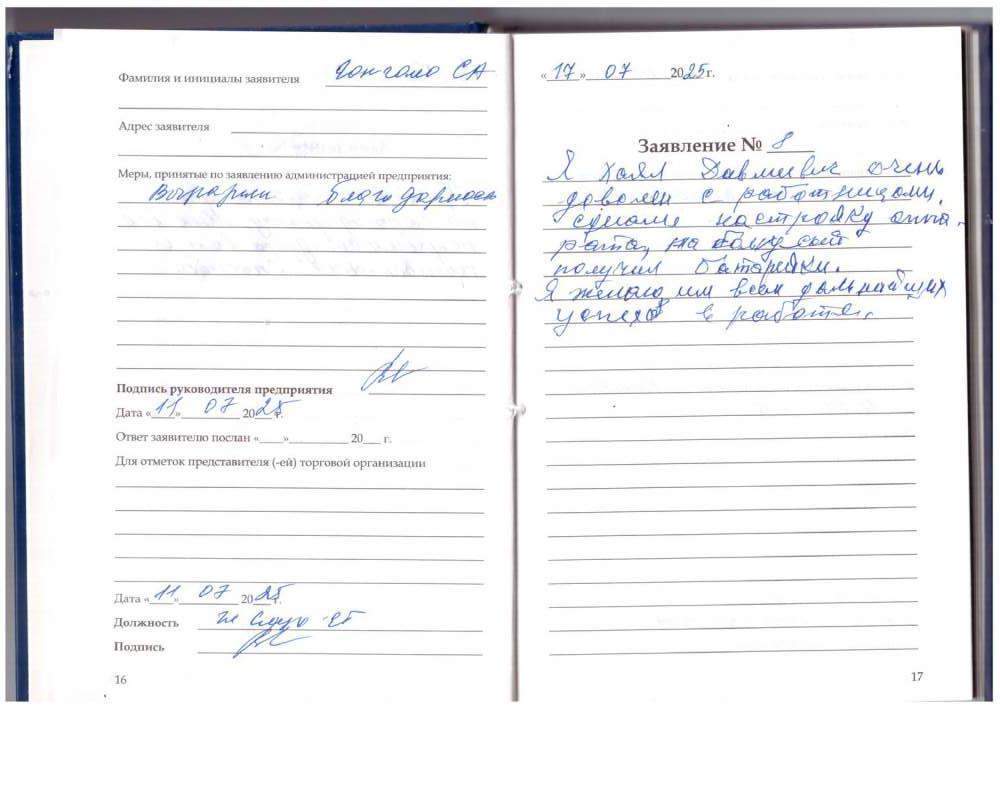 Фамилия и инициалы заявителя Гонгало СА
Адрес заявителя
Меры, принятые по заявлению администрацией предприятия:
Выразили благодарность
Подпись руководителя предприятия
Дата «11» 07 2025 г.
Ответ заявителю послан «___»__________ 20___ г.
Для отметок представителя (-ей) торговой организации
Дата «11» 07 2025 г.
Должность
Подпись
16
«17» 07 2025г.
Заявление № 8
Я Хаял очень
доволен с работницами.
сделали настройку аппа-
рата,
получил батарейки.
Я желаю им всем дальнайших
успехов в работе.
17